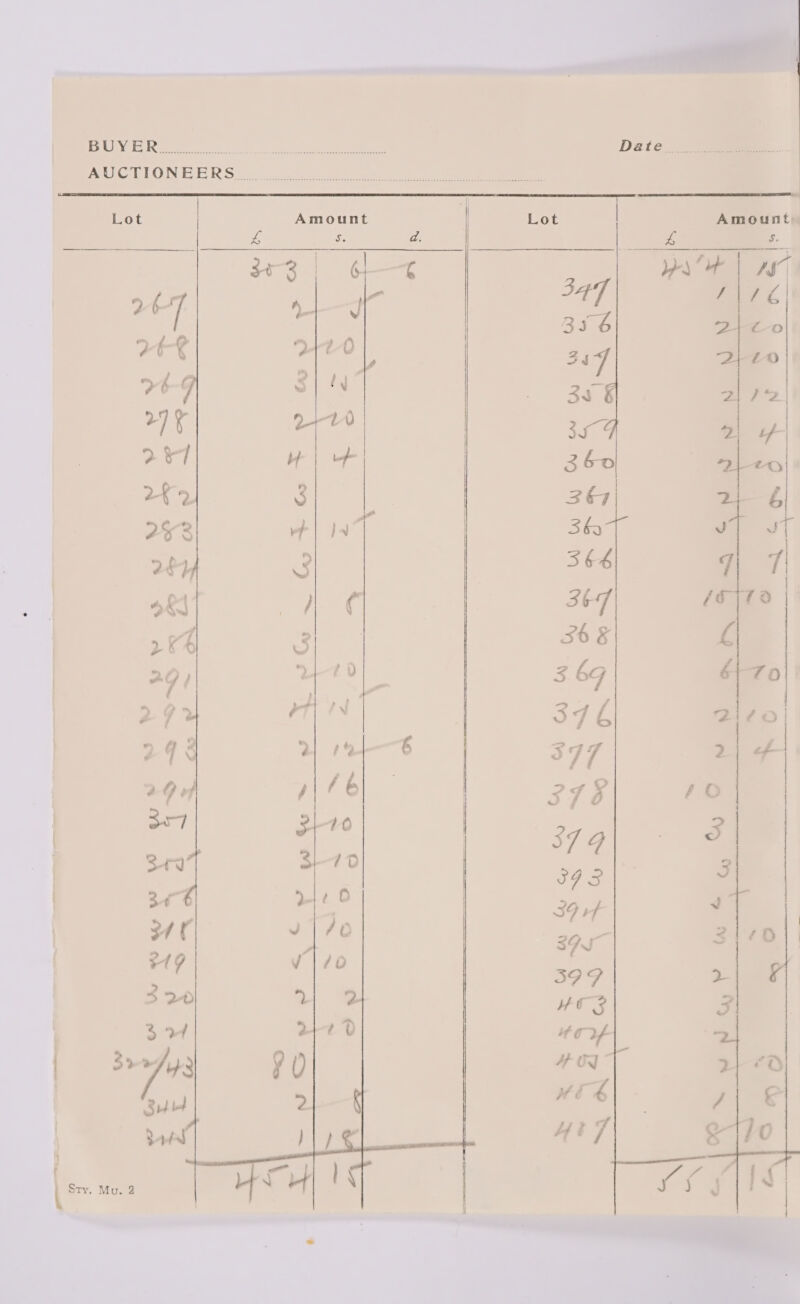 BUYER Date
AUCTIONEERS
Lot Amount Lot Amount
£ s. d. £ s.
303 6 6
267 2 5
268 2 10
269 3 15
278 2 10
281 4 4
282 3
283 4 15
284 3
285 1 8
286 3
291 2 10
292 4 15
293 2 12 6
294 1 16
301 3 10
305 3 10
306 2 10
318 5 10
319 5 10
320 2 2
321 2 10
322/43 90
344 2 8
345 1 18
454 18
454 18
347 1 16
356 2 10
357 2 10
358 2 12
359 2 4
360 2 10
361 2 6
365 5 5
366 9 7
367 16 10
368 6
369 6 10
376 2 10
377 2 4
378 10
379 3
393 3
394 5
395 3 10
399 2 8
403 3
404 2
405 2 10
406 1 8
417 8 10
555 15
Sty. Mu. 2